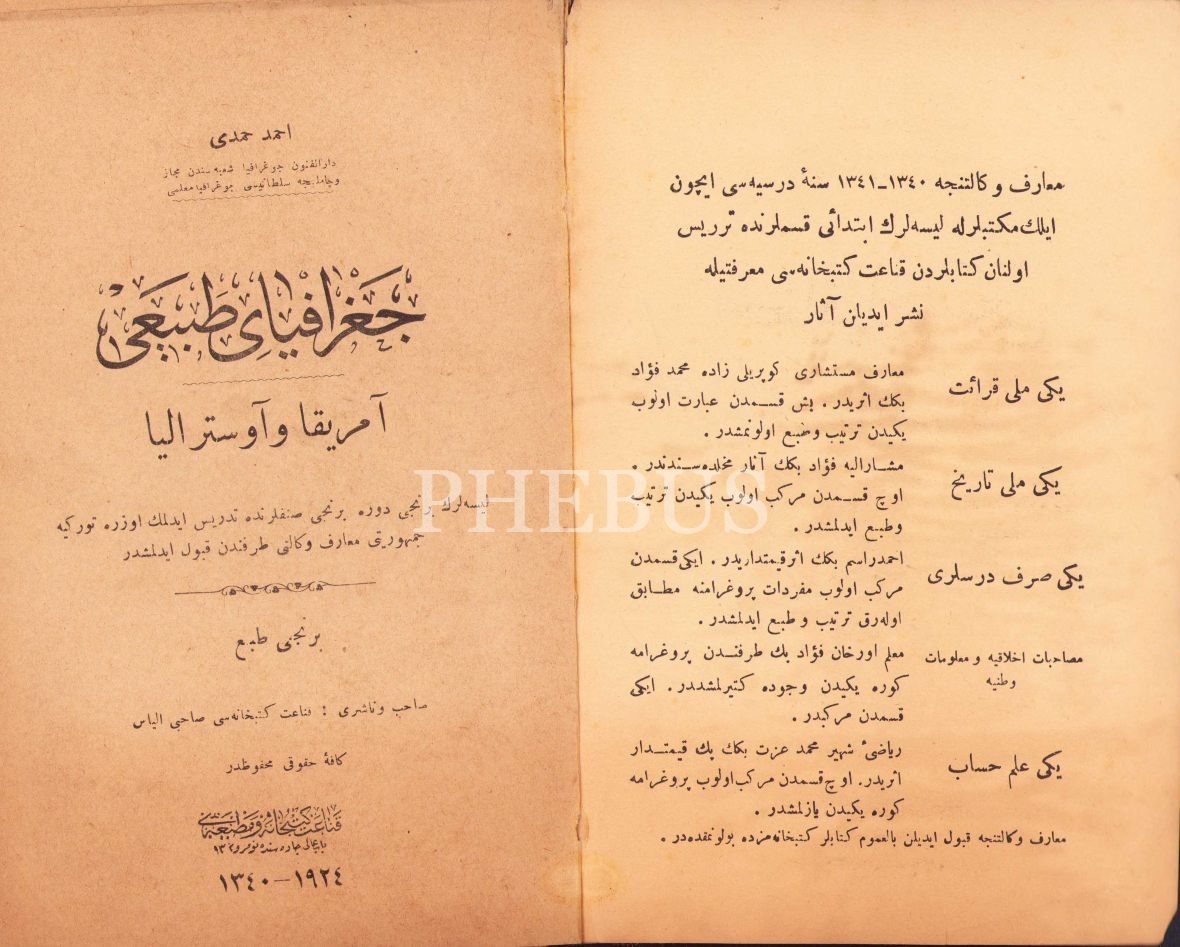 احمد حمدى
دارالفنون جوغرافيا شعبه سندن مجاز
وچاملیجه سلطانيسى جوغرافيا معلمى
جَغْرَافياىِ طَبيعَى
آمريقا و آوستراليا
ليسه لرك برنجى دوره برنجى صنفلرنده تدريس ايدلمك اوزره توركيه
جمهوريتى معارف وكالتى طرفندن قبول ايدلمشدر
برنجى طبع
صاحب وناشرى : قناعت كتبخانه سى صاحبى الياس
كافۀ حقوقى محفوظدر
قناعت كتبخانه ومطبعه سى
باب عالى جاده سنده نومرو ١٣٢
١٩٢٤ — ١٣٤٠
معارف وكالتنجه ١٣٤٠-١٣٤١ سنۀ درسيه سى ايچون
ايلك مكتبلرله ليسه لرك ابتدائى قسملرنده تدريس
اولنان كتابلردن قناعت كتبخانه سى معرفتيله
نشر ايديلن آثار
يكى ملى قرائت
معارف مستشارى كوپريلى زاده محمد فؤاد
بكك اثريدر . بش قسمدن عبارت اولوب
يكيدن ترتيب وطبع اولونمشدر .
يكى ملى تاريخ
مشاراليه فؤاد بكك آثار مخلده سندندر .
اوچ قسمدن مركب اولوب يكيدن ترتيب
وطبع ايدلمشدر .
يكى صرف درسلرى
احمدراسم بكك اثرقيمتداريدر . ايكى قسمدن
مركب اولوب مفردات پروغرامنه مطابق
اوله رق ترتيب و طبع ايدلمشدر .
مصاحبات اخلاقيه و معلومات
وطنيه
معلم اورخان فؤاد بك طرفندن پروغرامه
كوره يكيدن وجوده كتيرلمشدر . ايكى
قسمدن مركبدر .
يكى علم حساب
رياضىٔ شهير محمد عزت بكك پك قيمتدار
اثريدر . اوچ قسمدن مركب اولوب پروغرامه
كوره يكيدن يازلمشدر .
معارف وكالتنجه قبول ايديلن بالعموم كتابلر كتبخانه مزده بولونمقده در .
PHEBUS